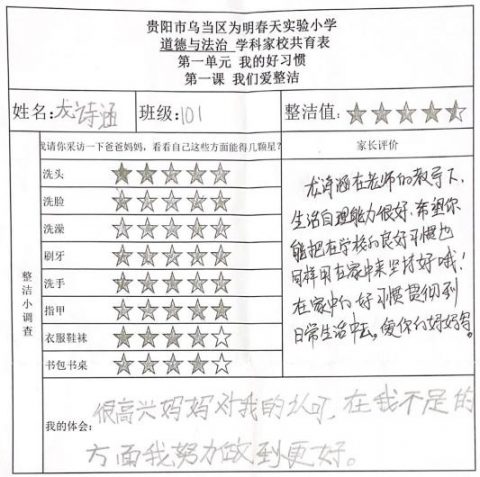 贵阳市乌当区为明春天实验小学
道德与法治 学科家校共育表
第一单元 我的好习惯
第一课 我们爱整洁
姓名:尤诗涵 班级:101 整洁值:
我请你采访一下爸爸妈妈,看看自己这些方面能得几颗星? 家长评价
整洁小调查
洗头
洗脸
洗澡
刷牙
洗手
指甲
衣服鞋袜
书包书桌
尤诗涵在老师的教导下,
生活自理能力很好,希望你
能把在学校的良好习惯也
同样用在家中来坚持好哦!
在家中的好习惯贯彻到
日常生活中去。爱你的妈妈
我的体会:
很高兴妈妈对我的认可,在我不足的
方面我努力做到更好。